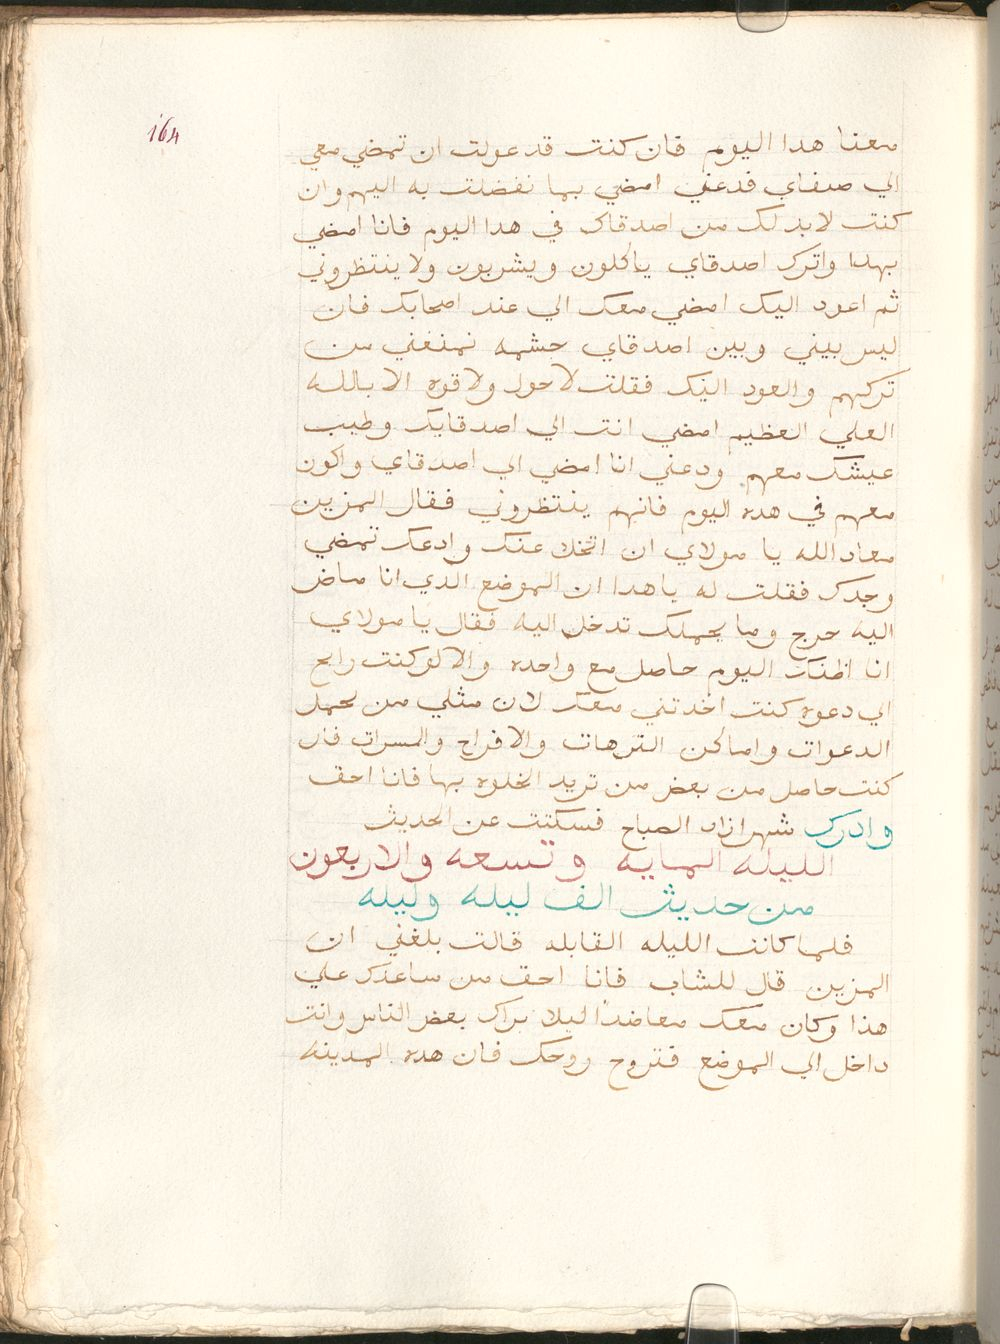 164
معنا هدا اليوم فان كنت قد عولت ان تمضي معي
الي صفاي فدعني امضي بما نفضلت به اليهم وان
كنت لابد لك من اصدقاك في هدا اليوم فانا امضي
بهدا واترك اصدقاي ياكلون ويشربون ولا ينتظروني
ثم اعود اليك امضي معك الي عند اصحابك فان
ليس بيني وبين اصدقاي حشمه تمنعني من
تركهم والعود اليك فقلت لاحول ولاقوه الا بالله
العلي العظيم امضي انت الي اصدقايك وطيب
عيشك معهم ودعني انا امضي الي اصدقاي واكون
معهم في هده اليوم فانهم ينتظروني فقال المزين
معاد الله يا مولاي ان اتخلا عنك وادعك تمضي
وحدك فقلت له ياهدا ان الموضع الدي انا ماض
اليه حرج وما يحملك تدخل اليه فقال يا مولاي
انا اظنك اليوم حاصل مع واحده والا لو كنت رايح
الي دعوه كنت اخدتني معك لان مثلي من يحمل
الدعوات واماكن الترهات والافراح والمسرات فان
كنت حاصل من بعض من تريد الخلوه بها فانا احق
وادرك شهرازاد الصباح فسكتت عن الحديث
الليله المايه وتسعه والاربعون
من حديث الف ليله وليله
فلما كانت الليله القابله قالت بلغني ان
المزين قال للشاب فانا احق من ساعدك علي
هذا وكان معك معاضدا ليلا يراك بعض الناس وانت
داخل الي الموضع فتروح روحك فان هده المدينه